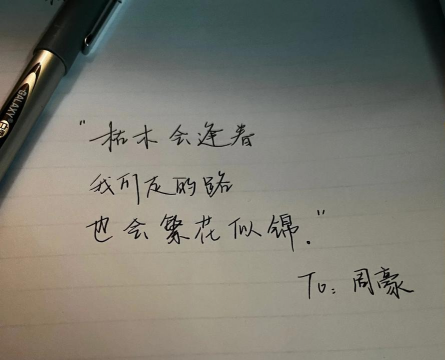 GALAXY
"枯木会逢春
我们走的路
也会繁花似锦."
To: 周豪